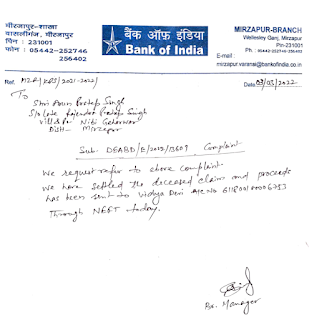 मीरजापुर-शाखा
वासलीगंज, मीरजापुर
पिन : 231001
फोन : 05442-252746
256402
बैंक ऑफ़ इंडिया
Bank of India
MIRZAPUR-BRANCH
Wellesley Ganj, Mirzapur
Pin-231001
Ph. : 05442-252746
E-mail :
mirzapur.varanasi@bankofindia.co.in
Ref. MZR/KBS/2021-2022/
Date 03/03/2022
To
Shri Arun Pratap Singh
S/o Late Rajendra Pratap Singh
Vill & Po Nibi Gaharwar
Dist- Mirzapur
Sub: DEABD/E/2022/13603 Complaint
We request refer to above complaint.
We have settled the deceased claim and proceeds
has been sent to Vidya Devi A/c No
Through NEFT today.
Br. Manager